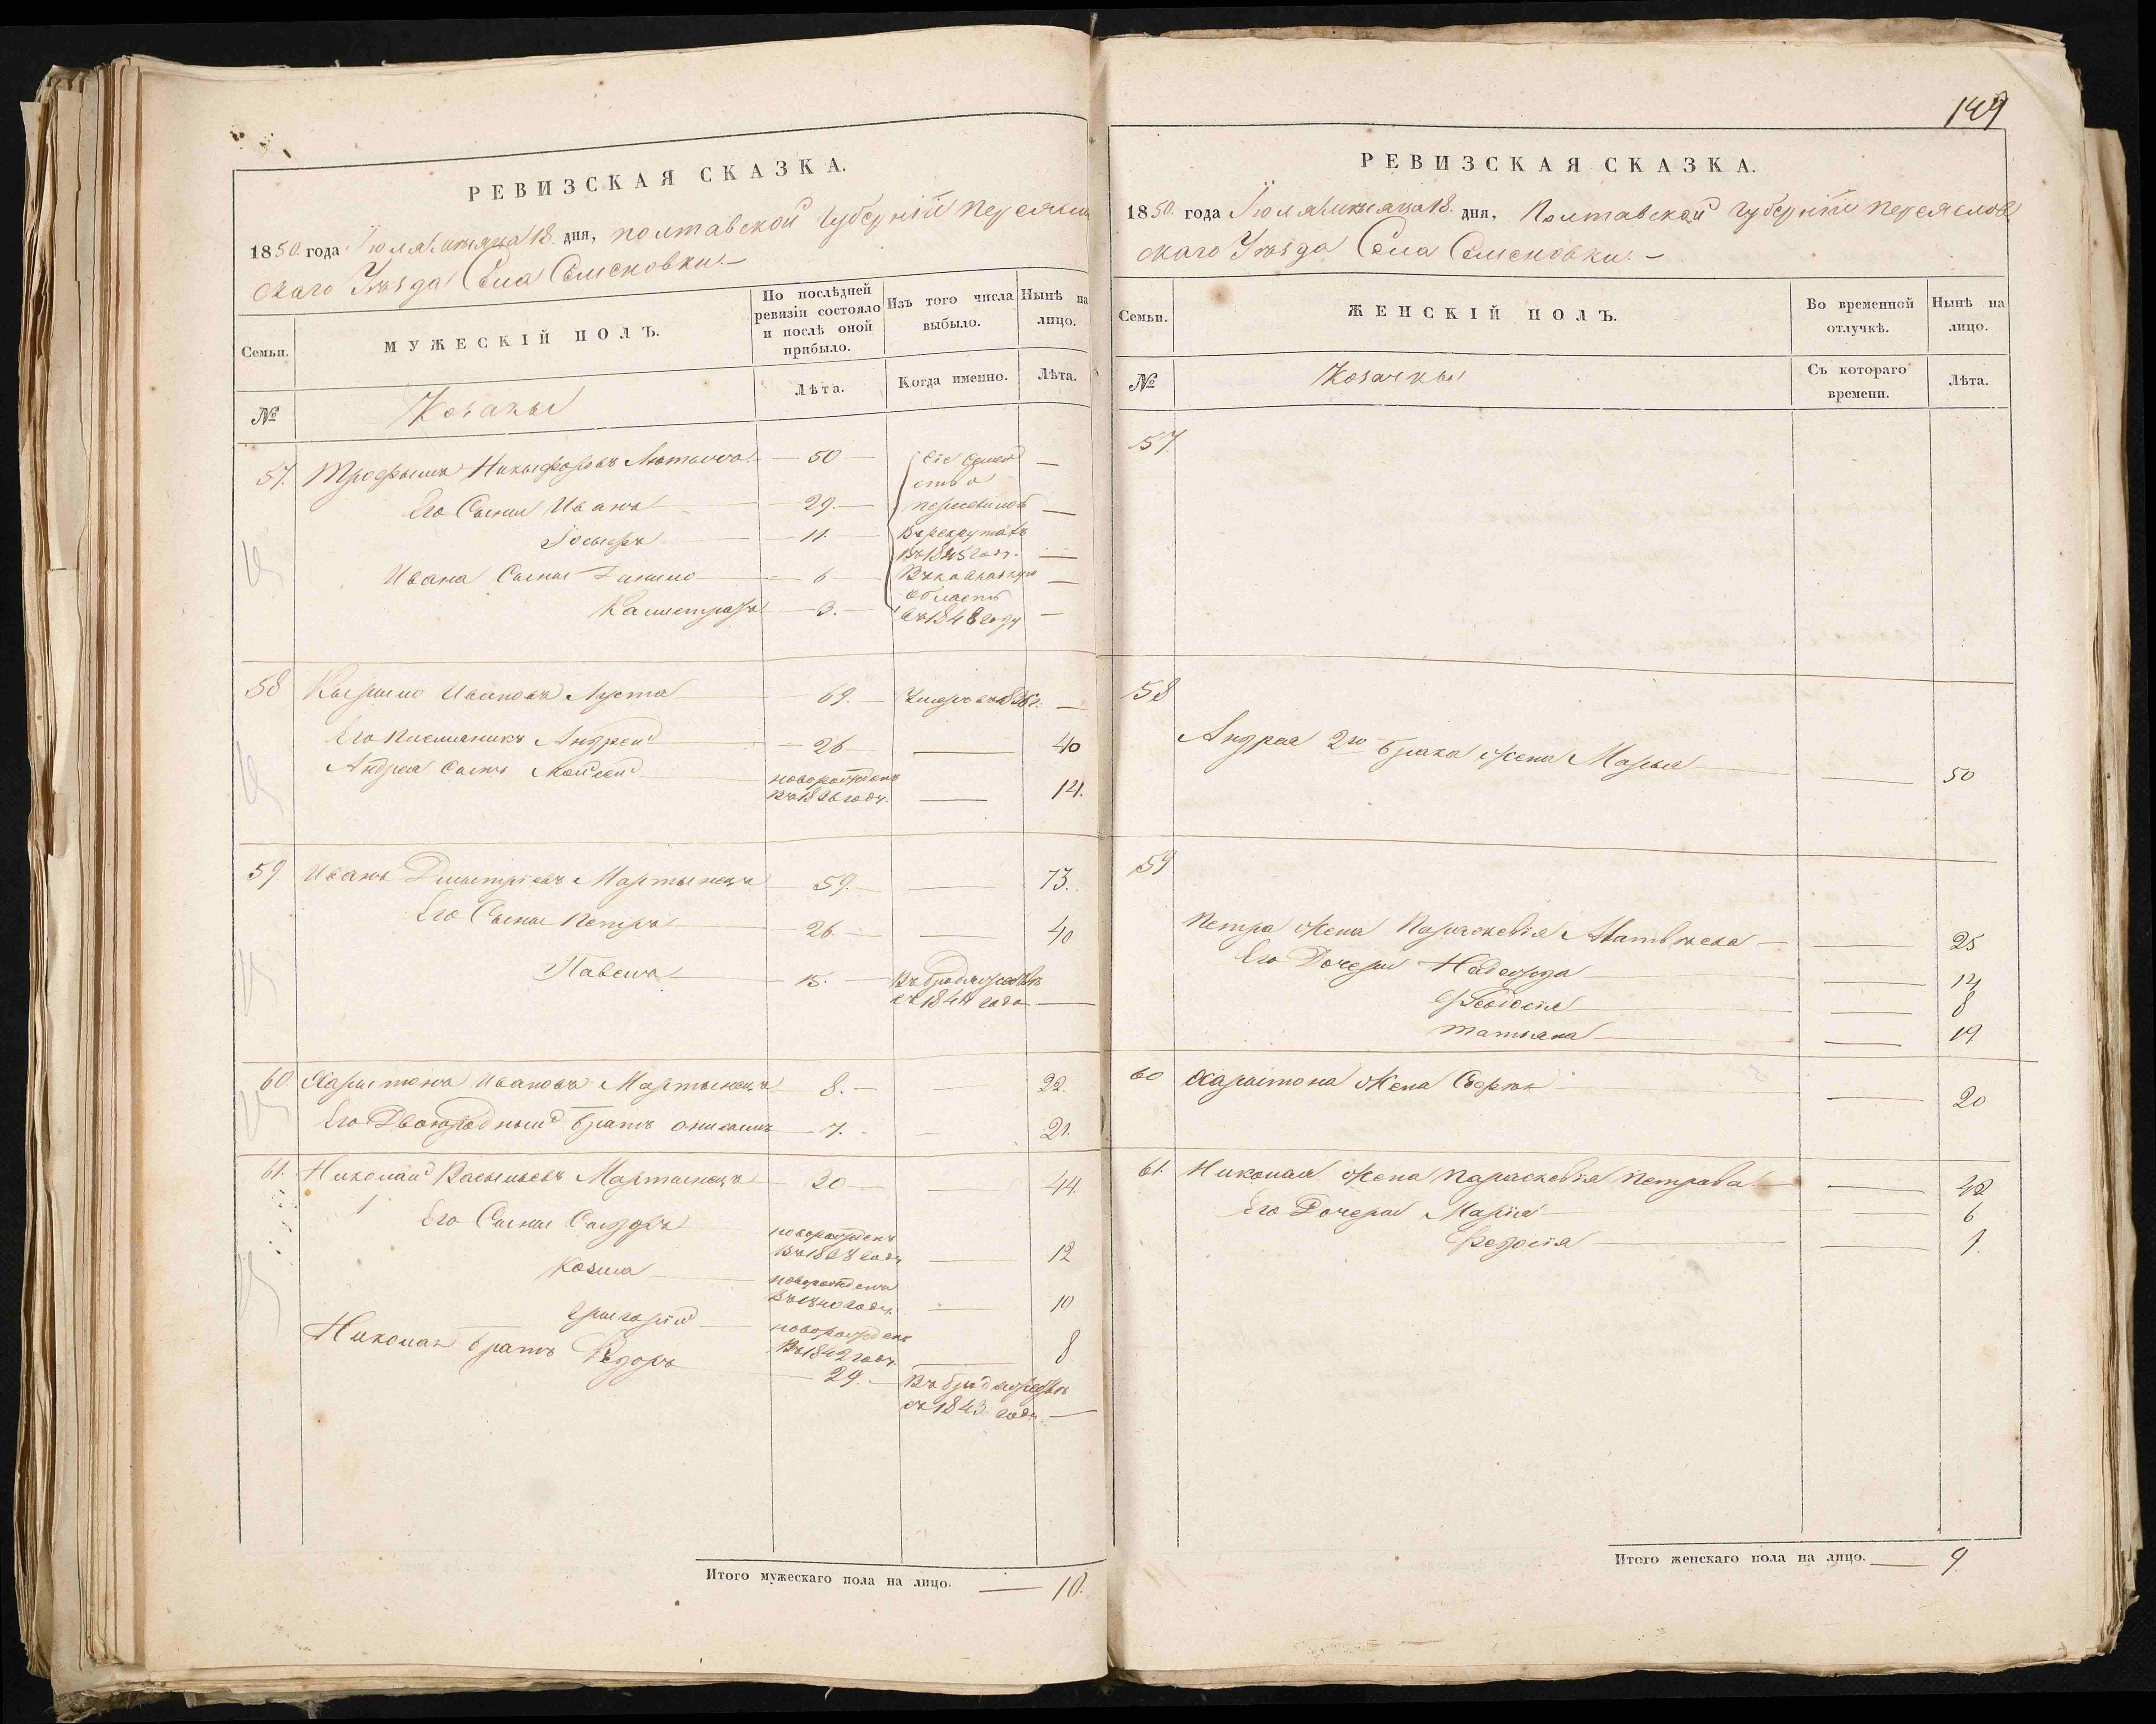 РЕВИЗСКАЯ СКАЗКА.
1850. года Июля месяца 18. дня, Полтавской Губерніи Переяслов
скаго Уѣзда Села Семеновки. —
Семьи.
МУЖЕСКІЙ ПОЛЪ.
По послѣдней ревизіи состояло и послѣ оной прибыло.
Изъ того числа выбыло.
Нынѣ на лицо.
№
Козаки
Лѣта.
Когда именно.
Лѣта.
57. Трофимъ Никифоровъ — 50 —
Его Сыны Иванъ — 29. —
Іосифъ — 11. —
Ивана Сыны Данило — 6 —
Калистратъ — 3. —
Сіе Семей
ство
въ 1848 году
58 Кирило Ивановъ — 69. —
Его Племяникъ Андрей — 26 — — 40
Андрея Сынъ Моисей новорожденъ — 14.
въ 1836 году.
59 Иванъ Дмитріевъ Мартынецъ — 59. — — 73.
Его Сыны Петръ — 26. — — 40
Павелъ — 15. — Въ бродяжествѣ
съ 1844 года —
60 Харитонъ Ивановъ Мартынецъ — 8. — — 22.
Его Двоюродный братъ Онисимъ — 7. — — 21.
61. Николай Васильевъ Мартынецъ — 30 — — 44.
Его Сыны Сидоръ новорожденъ
въ 1838 году — 12
Козма новорожденъ
въ 1840 году. — 10
Григорій новорожденъ
въ 1842 году. — 8
Николая братъ Федоръ — 29. — Въ бродяжествѣ
съ 1843 года —
Итого мужескаго пола на лицо. — 10.
149
РЕВИЗСКАЯ СКАЗКА.
1850. года Июля месяца 18. дня, Полтавской Губерніи Переяслов
скаго Уѣзда Села Семеновки. —
Семьи.
ЖЕНСКІЙ ПОЛЪ.
Во временной отлучкѣ.
Нынѣ на лицо.
№
Козачки
Съ котораго времени.
Лѣта.
57.
58
Андрея 2го брака жена Марья — — 50
59
Петра Жена Параскевія Матвѣева — — 25
Его Дочери Надежда — — 14
Феодосія — — 8
Татьяна — — 19
60 Харитона Жена — — 20
61. Николая Жена Параскевія Петрова — — 42
Его Дочери Марія — — 6
Федосія — — 1.
Итого женскаго пола на лицо. — 9